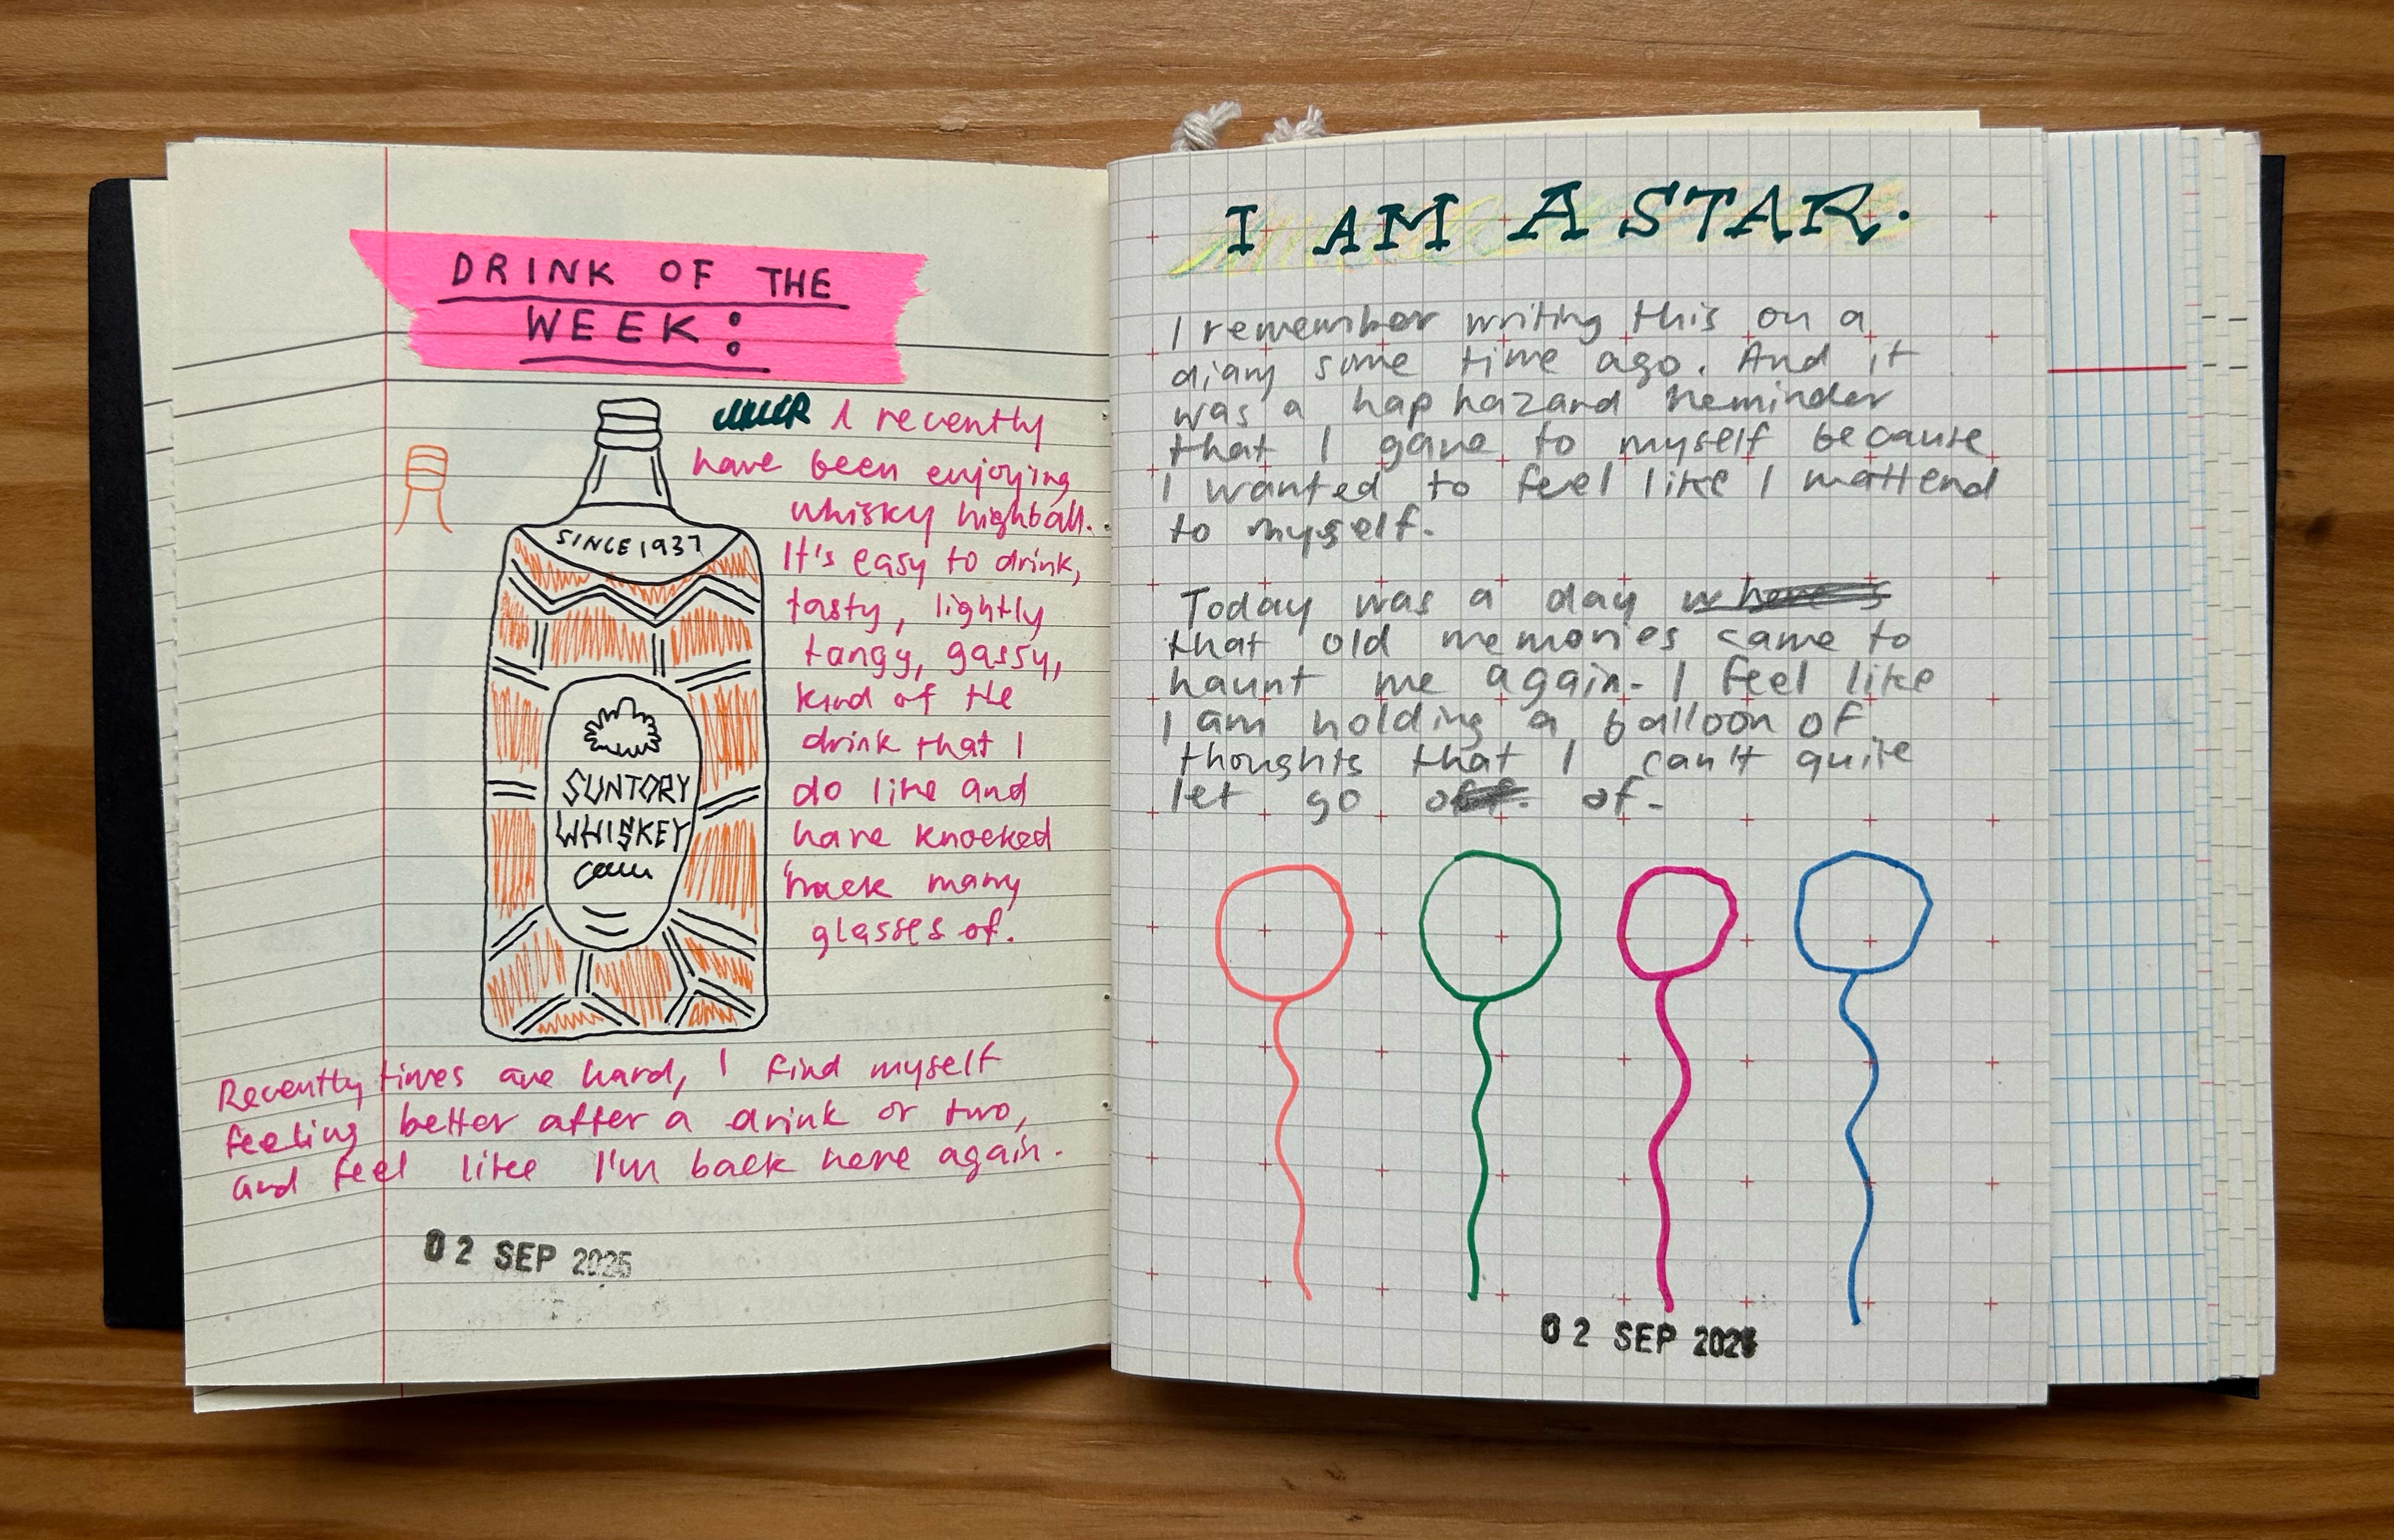 DRINK OF THE
WEEK:
I recently
have been enjoying
whisky highball.
It's easy to drink,
tasty, lightly
tangy, gassy,
kind of the
drink that I
do like and
have knocked
back many
glasses of.
SINCE 1937
SUNTORY
WHISKEY
Recently times are hard, I find myself
feeling better after a drink or two,
and feel like I'm back here again.
02 SEP 2025
I AM A STAR.
I remember writing this on a
diary some time ago. And it
was a haphazard reminder
that I gave to myself because
I wanted to feel like I mattered
to myself.
Today was a day
that old memories came to
haunt me again. I feel like
I am holding a balloon of
thoughts that I can't quite
let go of.
02 SEP 2025